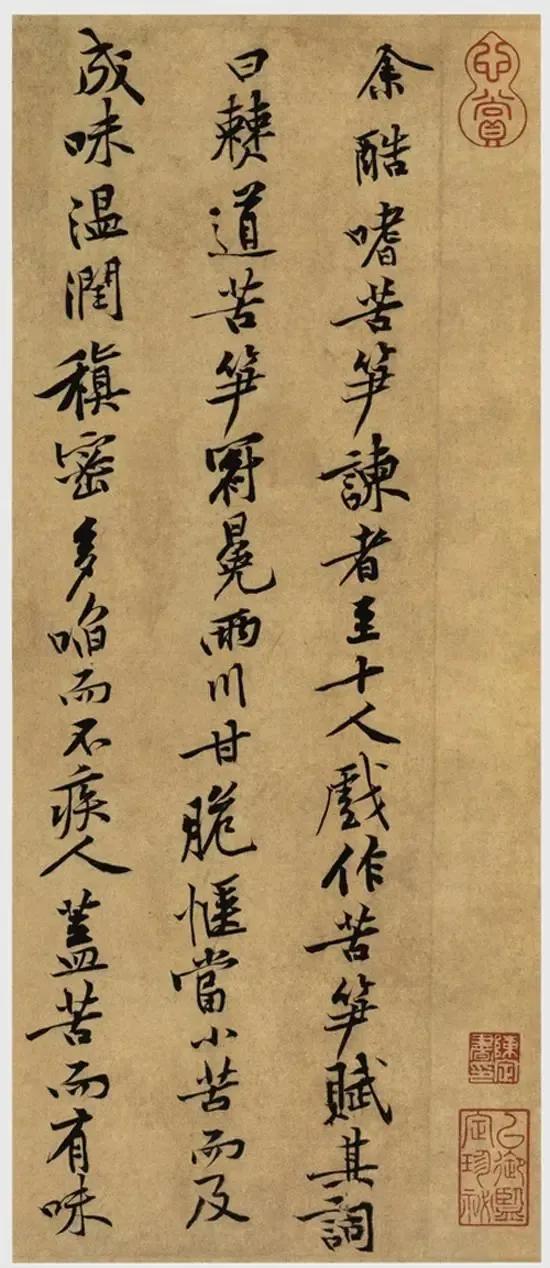 心賞
陳定
書印
余酷嗜苦笋諫者至十人戲作苦笋賦其詞
曰僰道苦笋冠冕兩川甘脆愜當小苦而及
成味温潤稹密多啗而不疾人蓋苦而有味